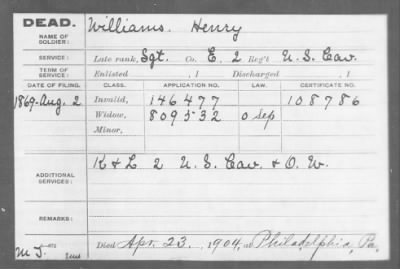 DEAD. Williams. Henry
NAME OF SOLDIER:
SERVICE: Late rank, Sgt. Co. E, 2 Reg't U. S. Cav.
TERM OF SERVICE: Enlisted , 1 Discharged , 1
DATE OF FILING. CLASS. APPLICATION NO. LAW. CERTIFICATE NO.
1869-Aug. 2 Invalid, 146477 108786
Widow, 809532 O Sep
Minor,
ADDITIONAL SERVICES: K & L 2 U. S. Cav. & O. W.
REMARKS:
Died Apr. 23, 1904, at Philadelphia, Pa.